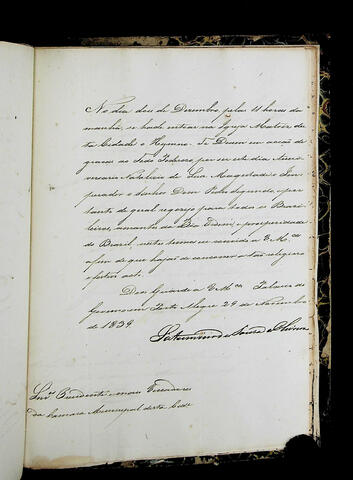 No dia dois de Dezembro, pelas 11 horas da
manhã, se hade entoar na Igreja Matriz des
ta Cidade o Hymno Te Deum em acção de
graças ao Todo Poderoso por ser este dia Anni
versario Natalicio de Sua Magestade o Im
perador o Senhor Dom Pedro Segundo, e por
tanto de geral regosijo para todos os Brasi
leiros, amantes da Paz, e prosperidade
do Brasil nestes termos eu convido a V. M.ces
a fim de que hajão de concorrer a tão religioso
festivo acto.
Deos Guarde a V. M.ces Palacio do
Governo em Porto Alegre 29 de Novembro
de 1839
Saturnino de Souza e Oliveira
Snr.es Presidente e mais Vereadores
da Camara Municipal desta Cid.e